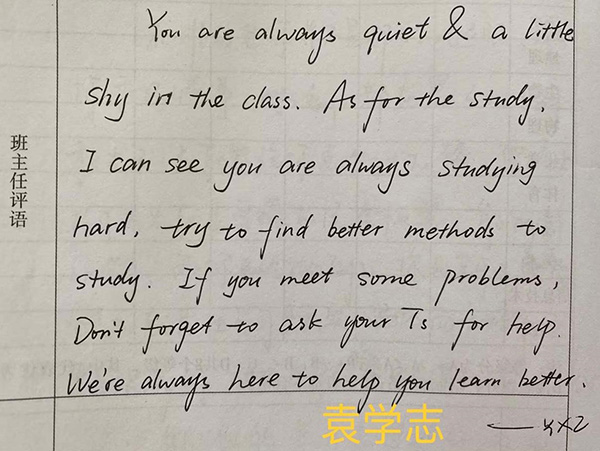 You are always quiet & a little
shy in the class. As for the study,
I can see you are always studying
hard, try to find better methods to
study. If you meet some problems,
Don't forget to ask your Ts for help.
We're always here to help you learn better.
班主任评语
袁学志